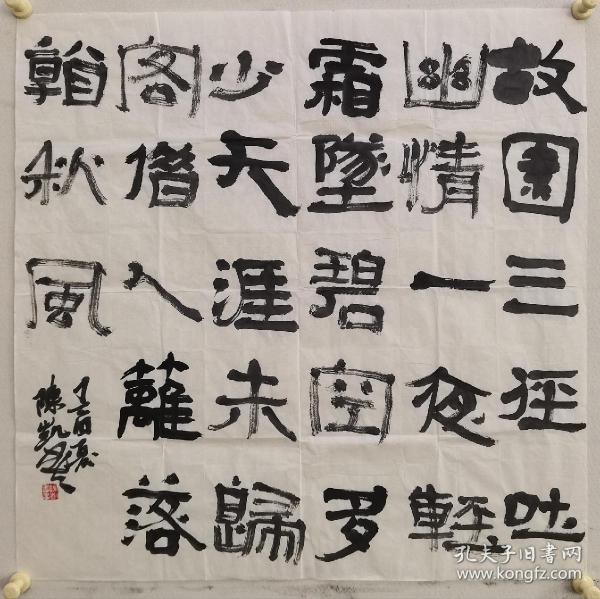 故園三徑吐
幽情一夜輕
霜墜碧空多
少天涯未歸
客借人籬落
看秋風
丁酉夏
陳凱書
孔夫子旧书网
www.kongfz.com